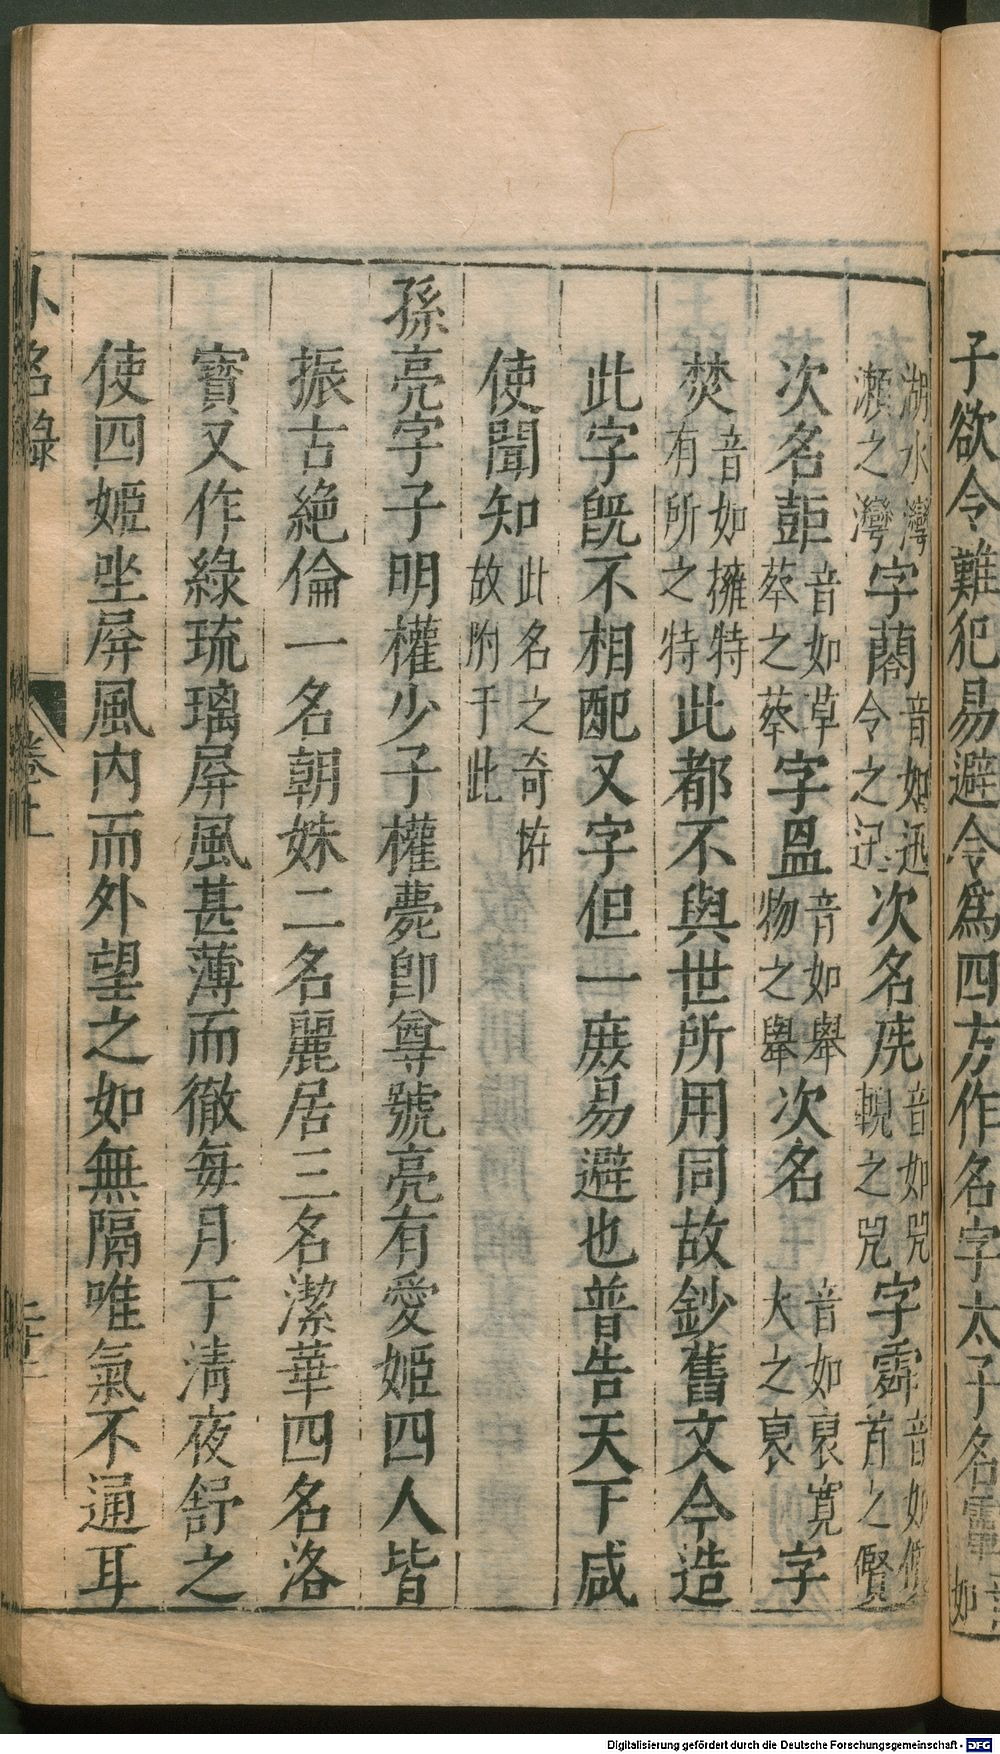 子欲令難犯易避令爲四方作名字太子名
湖水灣瀨之灣字音如迅令之迅次名音如咒輗之咒字音如首之
次名音如草蔡之蔡字昷音如舉物之舉次名音如裒寬大之裒字
焚音如擁特有所之特此都不與世所用同故鈔舊文今造
此字旣不相配又字但一庻易避也普告天下咸
使聞知此名之奇故附于此
孫亮字子明權少子權薨卽尊號亮有愛姬四人皆
振古絶倫一名朝姝二名麗居三名潔華四名洛
寳又作綠琉璃屏風甚薄而徹每月下清夜舒之
使四姬坐屏風内而外望之如無隔唯氣不通耳
名錄
卷
Digitalisierung gefördert durch die Deutsche Forschungsgemeinschaft - DFG